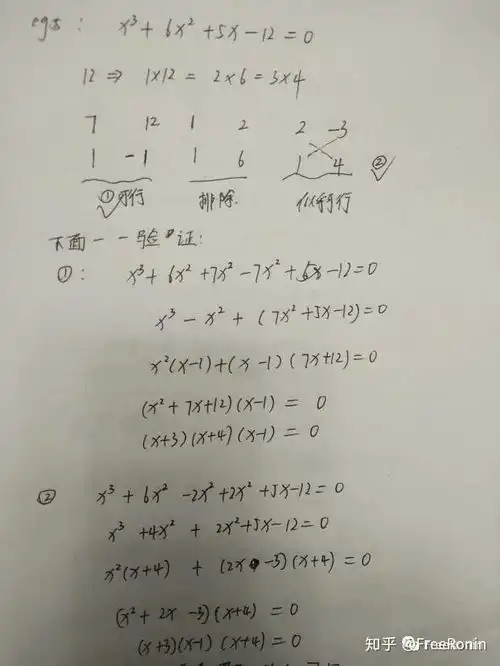 eg5: x³ + 6x² + 5x - 12 = 0
12 ⇒ 1×12 = 2×6 = 3×4
7 12 1 2 2 -3
1 -1 1 6 1 4 ②✓
①可行 排除. 似乎可行
下面一一验证:
①: x³ + 6x² + 7x² - 7x² + 5x - 12 = 0
x³ - x² + (7x² + 5x - 12) = 0
x²(x-1) + (x-1)(7x+12) = 0
(x² + 7x + 12)(x-1) = 0
(x+3)(x+4)(x-1) = 0
② x³ + 6x² - 2x² + 2x² + 5x - 12 = 0
x³ + 4x² + 2x² + 5x - 12 = 0
x²(x+4) + (2x - 3)(x+4) = 0
(x² + 2x - 3)(x+4) = 0
(x+3)(x-1)(x+4) = 0
知乎 @FreeRonin